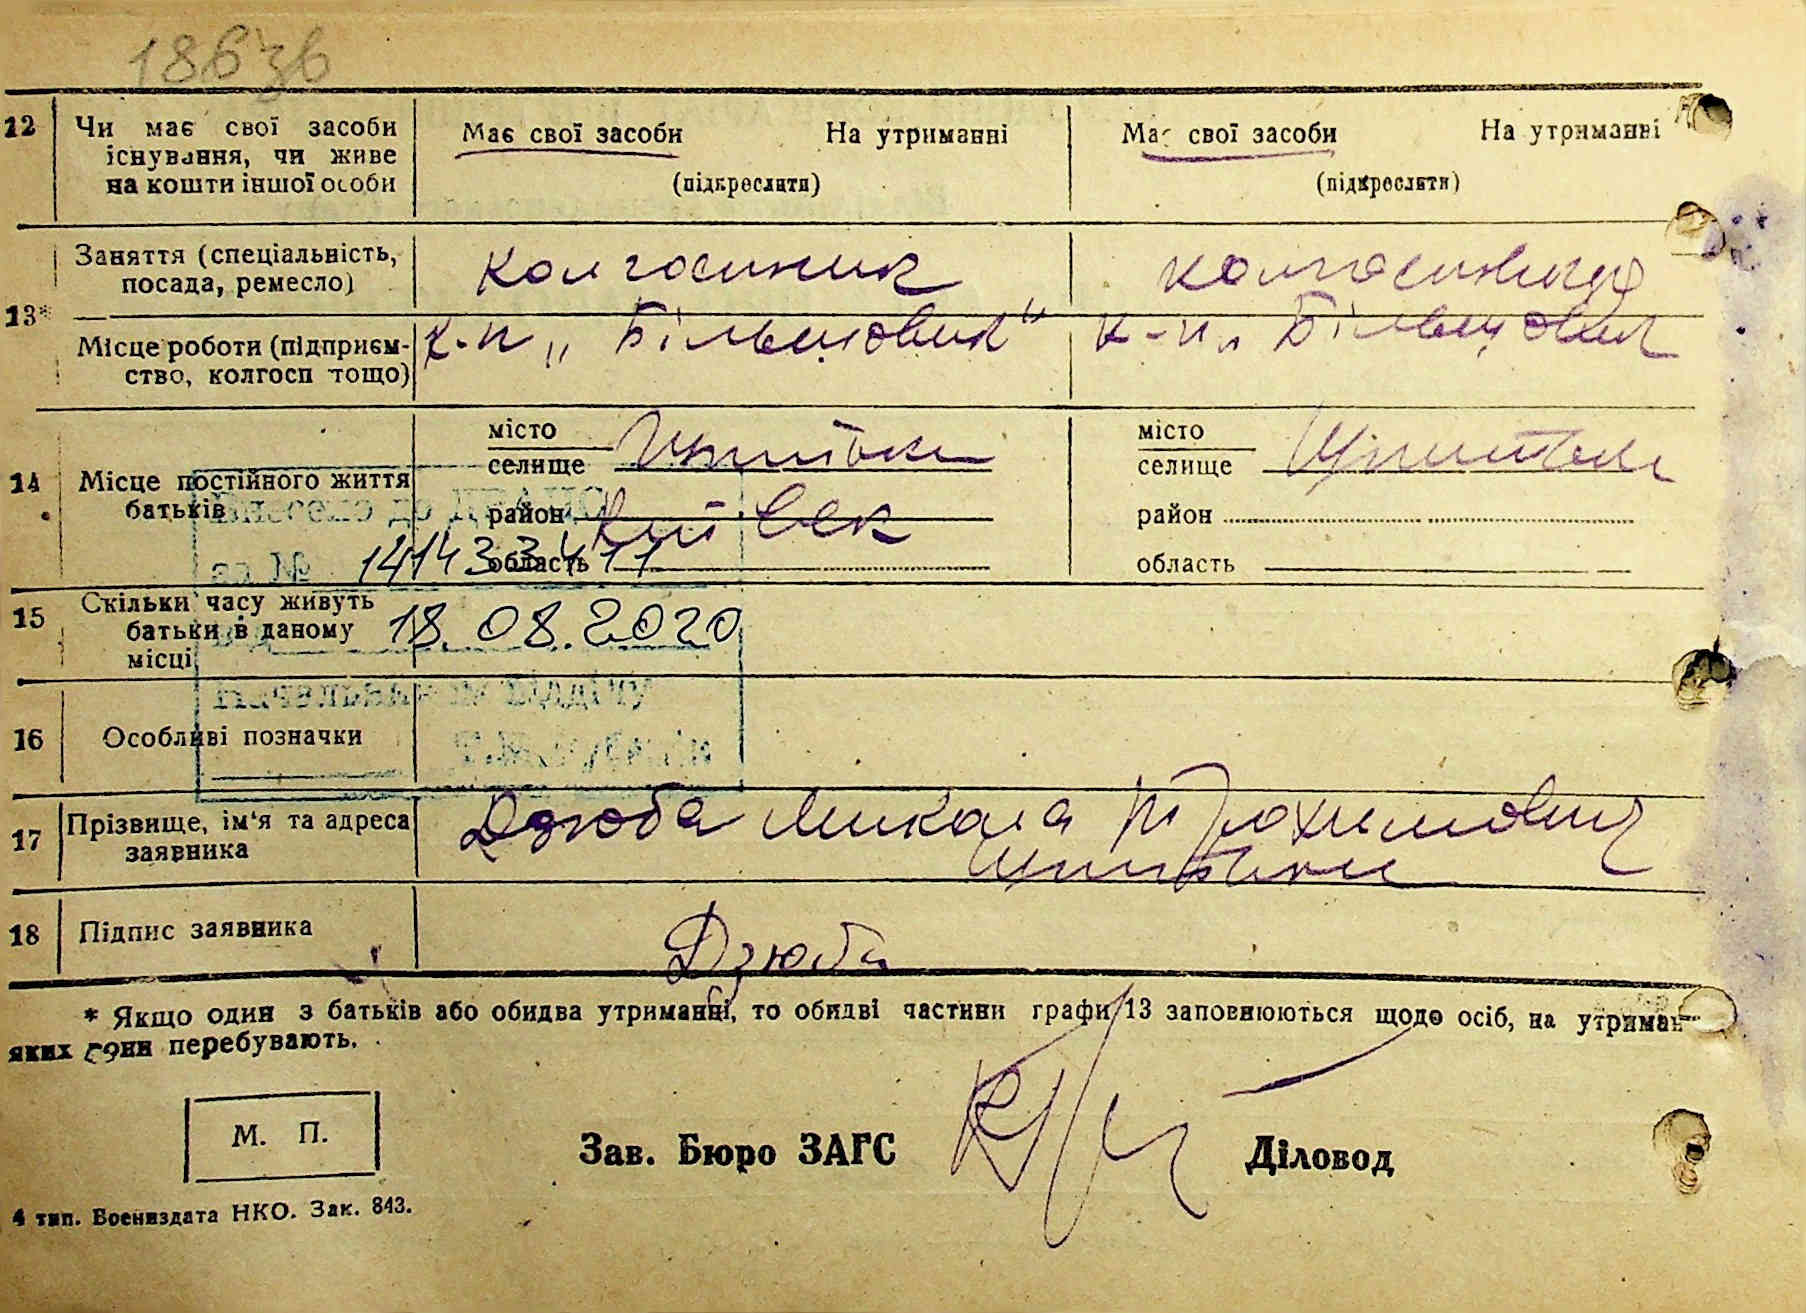 186зв
12 Чи має свої засоби існування, чи живе на кошти іншої особи
Має свої засоби На утриманні
(підкреслити)
Має свої засоби На утриманні
(підкреслити)
13*
Заняття (спеціальність, посада, ремесло)
колгоспник
колгоспниця
Місце роботи (підприємство, колгосп тощо)
к-п „Більшовик"
к-п „Більшовик
14 Місце постійного життя батьків
місто
селище
район
область
Київськ
1414334 11
місто
селище
район
область
15 Скільки часу живуть батьки в даному місці
18.08.2020
16 Особливі позначки
17 Прізвище, ім'я та адреса заявника
Дзюба Микола Трохимович
18 Підпис заявника
Дзюба
* Якщо один з батьків або обидва утриманні, то обидві частини графи 13 заповнюються щодо осіб, на утриман-
яких вони перебувають.
М. П.
Зав. Бюро ЗАГС
Діловод
4 тип. Воениздата НКО. Зак. 843.